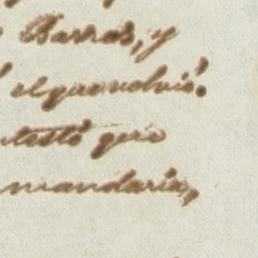 Barras, y
el que volvió.
testó que
mandaria,